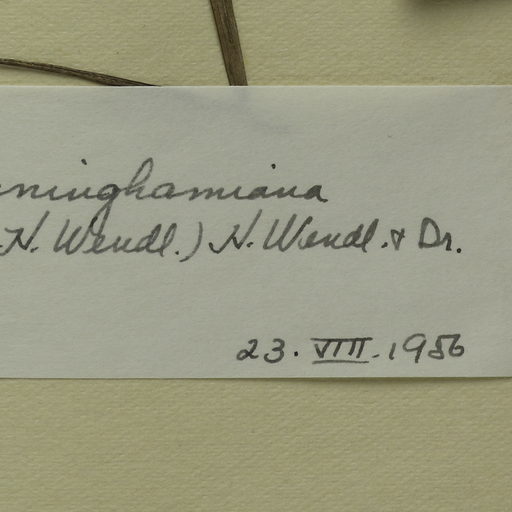 ninghamiana
H. Wendl.) H. Wendl. & Dr.
23. VIII. 1986